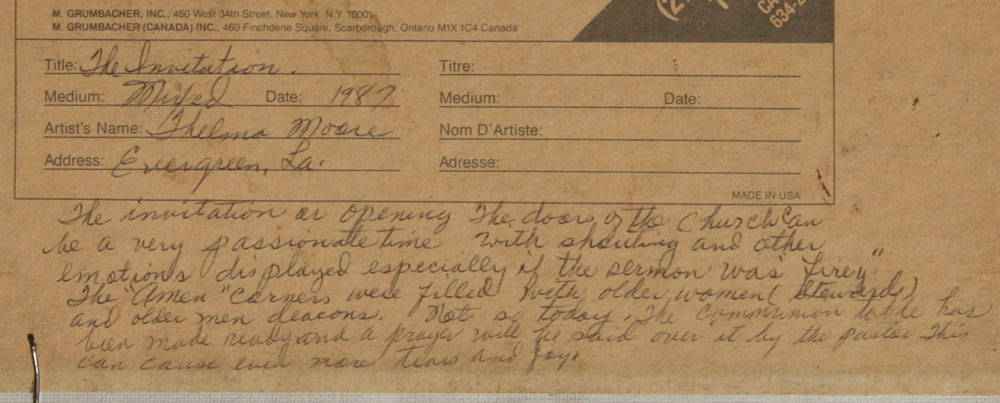 M. GRUMBACHER, INC., 460 West 34th Street, New York, N.Y. 10001
M. GRUMBACHER (CANADA) INC., 460 Finchdene Square, Scarborough, Ontario M1X 1C4 Canada
Title: The Invitation.
Titre:
Medium: Mixed Date: 1987
Medium: Date:
Artist's Name: Thelma Moore
Nom D'Artiste:
Address: Evergreen, La.
Adresse:
MADE IN USA
The invitation or opening the doors of the Church can
be a very passionate time with shouting and other
emotions displayed especially if the sermon was "firey"
The "Amen" Corners were filled with older women (Stewards)
and older men deacons. Not so today. The Communion table has
been made ready and a prayer will be said over it by the pastor This
can cause even more tears and joy.